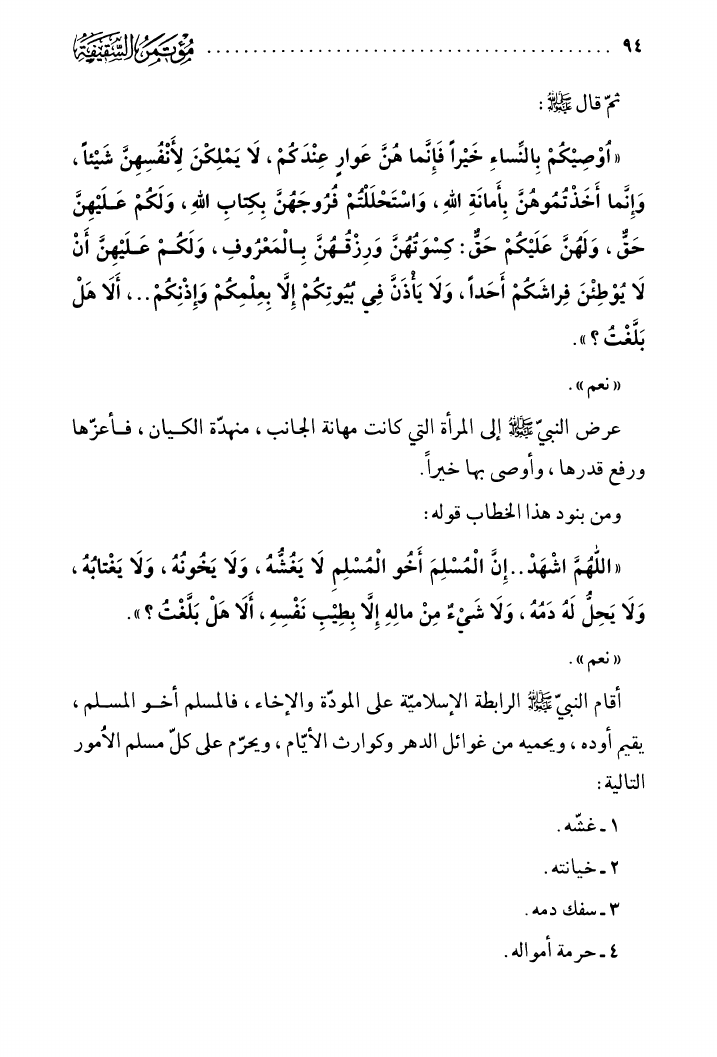 ٩٤ ........................................ مؤتمر السقيفة
ثمّ قال ﷺ :
« اُوْصِيْكُمْ بِالنِّساءِ خَيْراً فَإِنَّما هُنَّ عَوارٍ عِنْدَكُمْ ، لَا يَمْلِكْنَ لِأَنْفُسِهِنَّ شَيْئاً ،
وَإِنَّما أَخَذْتُمُوهُنَّ بِأَمانَةِ اللهِ ، وَاسْتَحْلَلْتُمْ فُرُوجَهُنَّ بِكِتابِ اللهِ ، وَلَكُمْ عَـلَيْهِنَّ
حَقٌّ ، وَلَهُنَّ عَلَيْكُمْ حَقٌّ : كِسْوَتُهُنَّ وَرِزْقُـهُنَّ بِـالْمَعْرُوفِ ، وَلَكُـمْ عَـلَيْهِنَّ أَنْ
لَا يُوْطِئْنَ فِراشَكُمْ أَحَداً ، وَلَا يَأْذَنَّ فِي بُيُوتِكُمْ إِلَّا بِعِلْمِكُمْ وَإِذْنِكُمْ . . ، أَلَا هَلْ
بَلَّغْتُ ؟ » .
« نعم » .
عرض النبيّ ﷺ إلى المرأة التي كانت مهانة الجانب ، منهدّة الكـيان ، فـأعزّها
ورفع قدرها ، وأوصى بها خيراً .
ومن بنود هذا الخطاب قوله :
« اللّٰهُمَّ اشْهَدْ . . إِنَّ الْمُسْلِمَ أَخُو الْمُسْلِمِ لَا يَغُشُّهُ ، وَلَا يَخُونُهُ ، وَلَا يَغْتابُهُ ،
وَلَا يَحِلُّ لَهُ دَمُهُ ، وَلَا شَيْءٌ مِنْ مالِهِ إِلَّا بِطِيْبِ نَفْسِهِ ، أَلَا هَلْ بَلَّغْتُ ؟ » .
« نعم » .
أقام النبيّ ﷺ الرابطة الإسلاميّة على المودّة والإخاء ، فالمسلم أخـو المسـلم ،
يقيم أوده ، ويحميه من غوائل الدهر وكوارث الأيّام ، ويحرّم على كلّ مسلم الاُمور
التالية :
١ ـ غشّه .
٢ ـ خيانته .
٣ ـ سفك دمه .
٤ ـ حرمة أمواله .